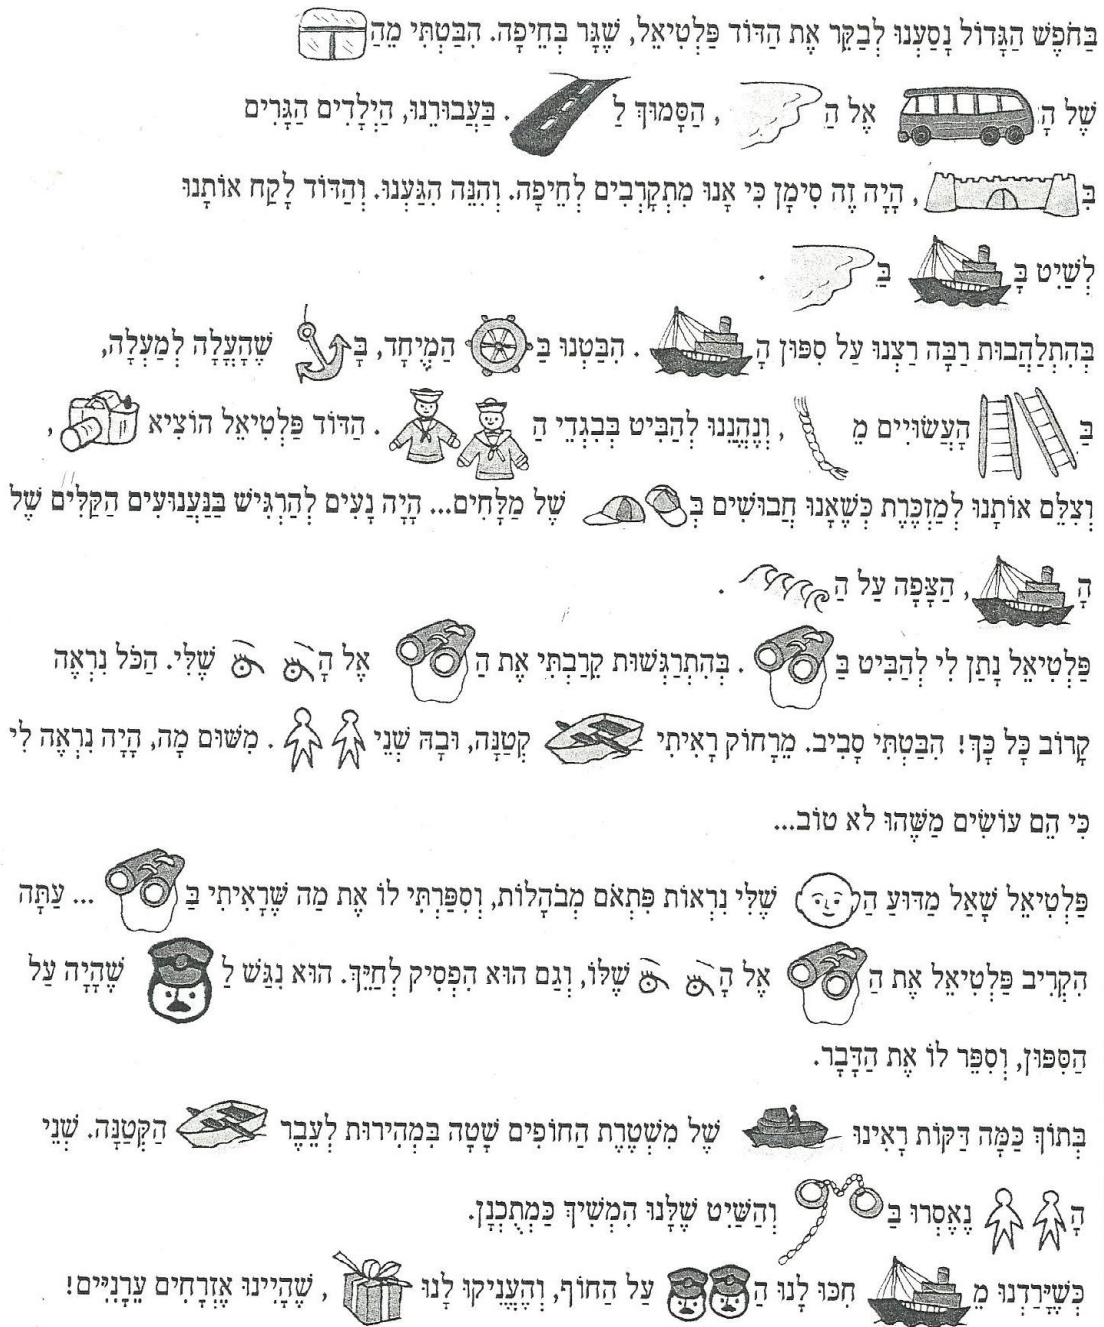 בַּחֹפֶשׁ הַגָּדוֹל נָסַעְנוּ לְבַקֵּר אֶת הַדּוֹד פַּלְטִיאֵל, שֶׁגָּר בְּחֵיפָה. הִבַּטְתִּי מֵהַ
שֶׁל הָ אֶל הַ , הַסָּמוּךְ לַ . בַּעֲבוּרֵנוּ, הַיְלָדִים הַגָּרִים
בִּ , הָיָה זֶה סִימָן כִּי אָנוּ מִתְקָרְבִים לְחֵיפָה. וְהִנֵּה הִגַּעְנוּ. וְהַדּוֹד לָקַח אוֹתָנוּ
לְשַׁיִט בָּ בַּ .
בְּהִתְלַהֲבוּת רַבָּה רַצְנוּ עַל סִפּוּן הָ . הִבַּטְנוּ בַּ הַמְיֻחָד, בָּ שֶׁהָעֳלָה לְמַעְלָה,
בַּ הָעֲשׂוּיִים מֵ , וְנֶהֱנֵנוּ לְהַבִּיט בְּבִגְדֵי הַ . הַדּוֹד פַּלְטִיאֵל הוֹצִיא ,
וְצִלֵּם אוֹתָנוּ לְמַזְכֶּרֶת כְּשֶׁאָנוּ חֲבוּשִׁים בְּ שֶׁל מַלָּחִים... הָיָה נָעִים לְהַרְגִּישׁ בַּנַּעֲנוּעִים הַקַּלִּים שֶׁל
הָ , הַצָּפָה עַל הַ .
פַּלְטִיאֵל נָתַן לִי לְהַבִּיט בַּ . בְּהִתְרַגְּשׁוּת קֵרַבְתִּי אֶת הַ אֶל הָ שֶׁלִּי. הַכֹּל נִרְאֶה
קָרוֹב כָּל כָּךְ! הִבַּטְתִּי סָבִיב. מֵרָחוֹק רָאִיתִי קְטַנָּה, וּבָהּ שְׁנֵי . מִשּׁוּם מָה, הָיָה נִרְאֶה לִי
כִּי הֵם עוֹשִׂים מַשֶּׁהוּ לֹא טוֹב...
פַּלְטִיאֵל שָׁאַל מַדּוּעַ הַ שֶׁלִּי נִרְאוֹת פִּתְאֹם מְבֹהָלוֹת, וְסִפַּרְתִּי לוֹ אֶת מַה שֶּׁרָאִיתִי בַּ ... עַתָּה
הִקְרִיב פַּלְטִיאֵל אֶת הַ אֶל הָ שֶׁלּוֹ, וְגַם הוּא הִפְסִיק לְחַיֵּךְ. הוּא נִגַּשׁ לַ שֶׁהָיָה עַל
הַסִּפּוּן, וְסִפֵּר לוֹ אֶת הַדָּבָר.
בְּתוֹךְ כַּמָּה דַּקּוֹת רָאִינוּ שֶׁל מִשְׁטֶרֶת הַחוֹפִים שָׁטָה בִּמְהִירוּת לְעֵבֶר הַקְּטַנָּה. שְׁנֵי
הָ נֶאֶסְרוּ בַּ וְהַשַּׁיִט שֶׁלָּנוּ הִמְשִׁיךְ כַּמְתֻכְנָן.
כְּשֶׁיָּרַדְנוּ מֵ חִכּוּ לָנוּ הַ עַל הַחוֹף, וְהֶעֱנִיקוּ לָנוּ , שֶׁהָיִינוּ אֶזְרָחִים עֵרָנִיִּים!